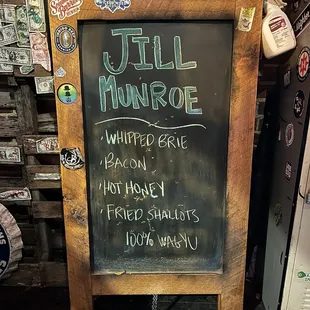 JILL
MUNROE
· WHIPPED BRIE
· BACON
· HOT HONEY
· FRIED SHALLOTS
100% WAGYU